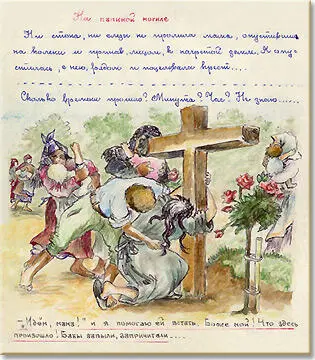 На папиной могиле
Ни стона, ни слезы не пролила мама, опустившись
на колени и припав лицом, к нагретой земле. Я опу-
стилась с нею, рядом и поцеловала крест....
Сколько времени прошло? Минута? Час? Не знаю......
-"Идём, мама!" и я помогаю ей встать. Боже мой! Что здесь
произошло! Бабы завыли, запричитали....